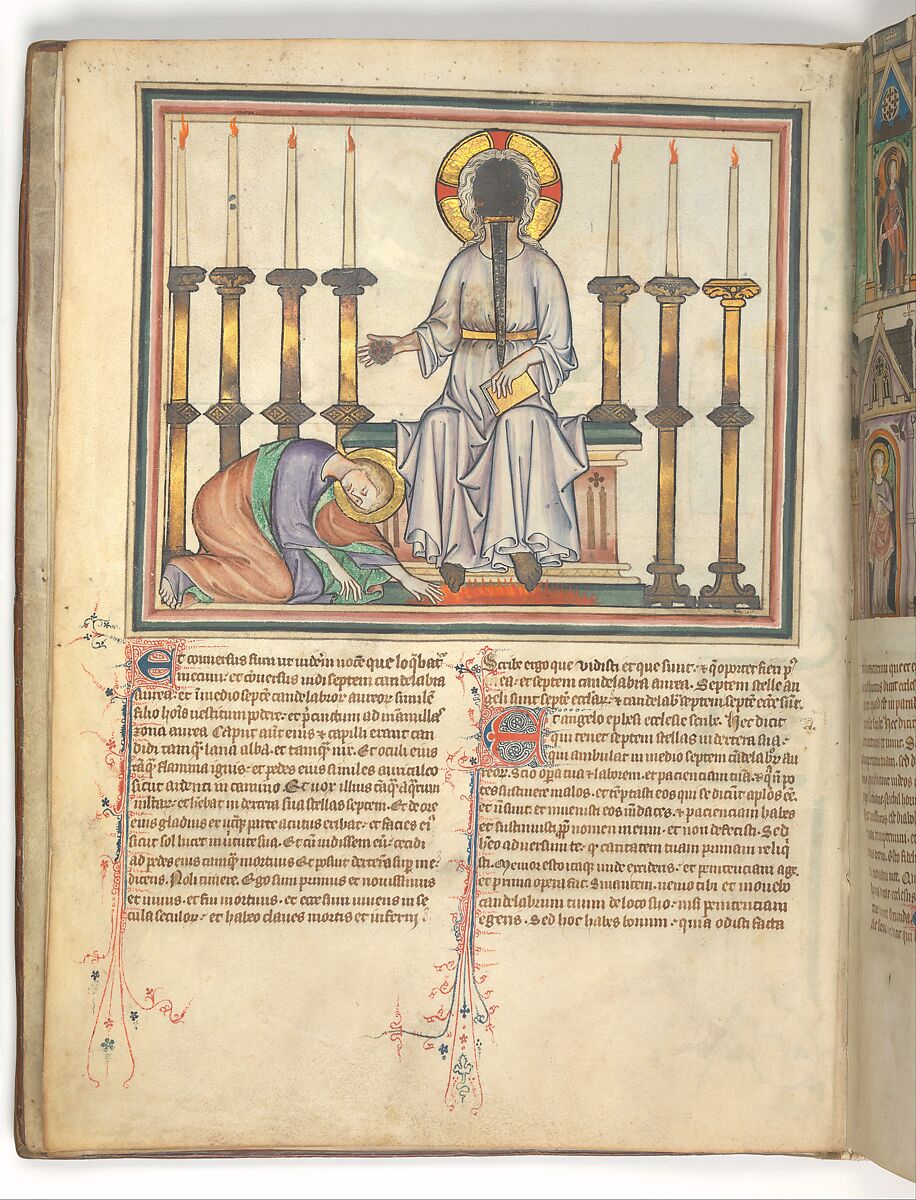 Et conversus sum ut viderem vocem que loq̄bat᷑
mecum: et cōversus vidi septem candelabra
aurea: et ī medio septē candelabroꝝ aureoꝝ similē
filio hoīs vestitum podere: et p̄cinctum ad mamillas
zona aurea. Caput aut̄ eius ⁊ capilli erant can
didi tamq̄ lana alba: et tamq̄ nix. Et oculi eius
tāq̄ flamma ignis: et pedes eius similes auricalco
sicut ardenti in camino. Et vox illius tāq̄ aq̄rum
multar̄: et hēbat in dextera sua stellas septem. Et de ore
eius gladius ex utq̄ꝫ parte acutus exibat: et facies ei᷒
sicut sol lucet in virtute sua. Et cū vidissem eū: cecidi
ad pedes eius tamq̄ mortuus. Et posuit dexterā suā sup̲ me
dicens. Noli timere. Ego sum primus et novissimus
et vivus. et fui mortuus. et ecce sum vivens in se
cula seculoꝝ: et habeo claves mortis et inferni.
Scribe ergo que vidisti et que sunt: ⁊ q̄ oportet fieri p᷒
ea: et septem candelabra aurea. Septem stelle an
geli sunt septē ecclīar̄: ⁊ candelab̄ septem septē eccīe sūt.
Et angelo ephesi ecclesie scribe. Hec dicit
qui tenet septem stellas in dextera sua:
qui ambulat in medio septem cādelabroꝝ au
reoꝝ. Scio op̲a tua ⁊ laborem. et pacienciam tuā: ⁊ q̄ nō po
tes sustinere malos. et tēptasti eos qui se dicūt aplōs eē.
et nō sunt: et invenisti eos mēdaces: ⁊ pacienciam habes
et sustinuisti p̲p̲ nomen meum. et non defecisti. Sed
hēo adversum te: q̲ caritatem tuam primam reliq̄
sti. Memor esto itaqꝫ unde excideris: et penitenciam age.
et prima opera fac. Sin autem. venio tibi et movebo
candelabrum tuum de loco suo: nisi penitenciam
egeris. Sed hoc habes bonum: quia odisti facta